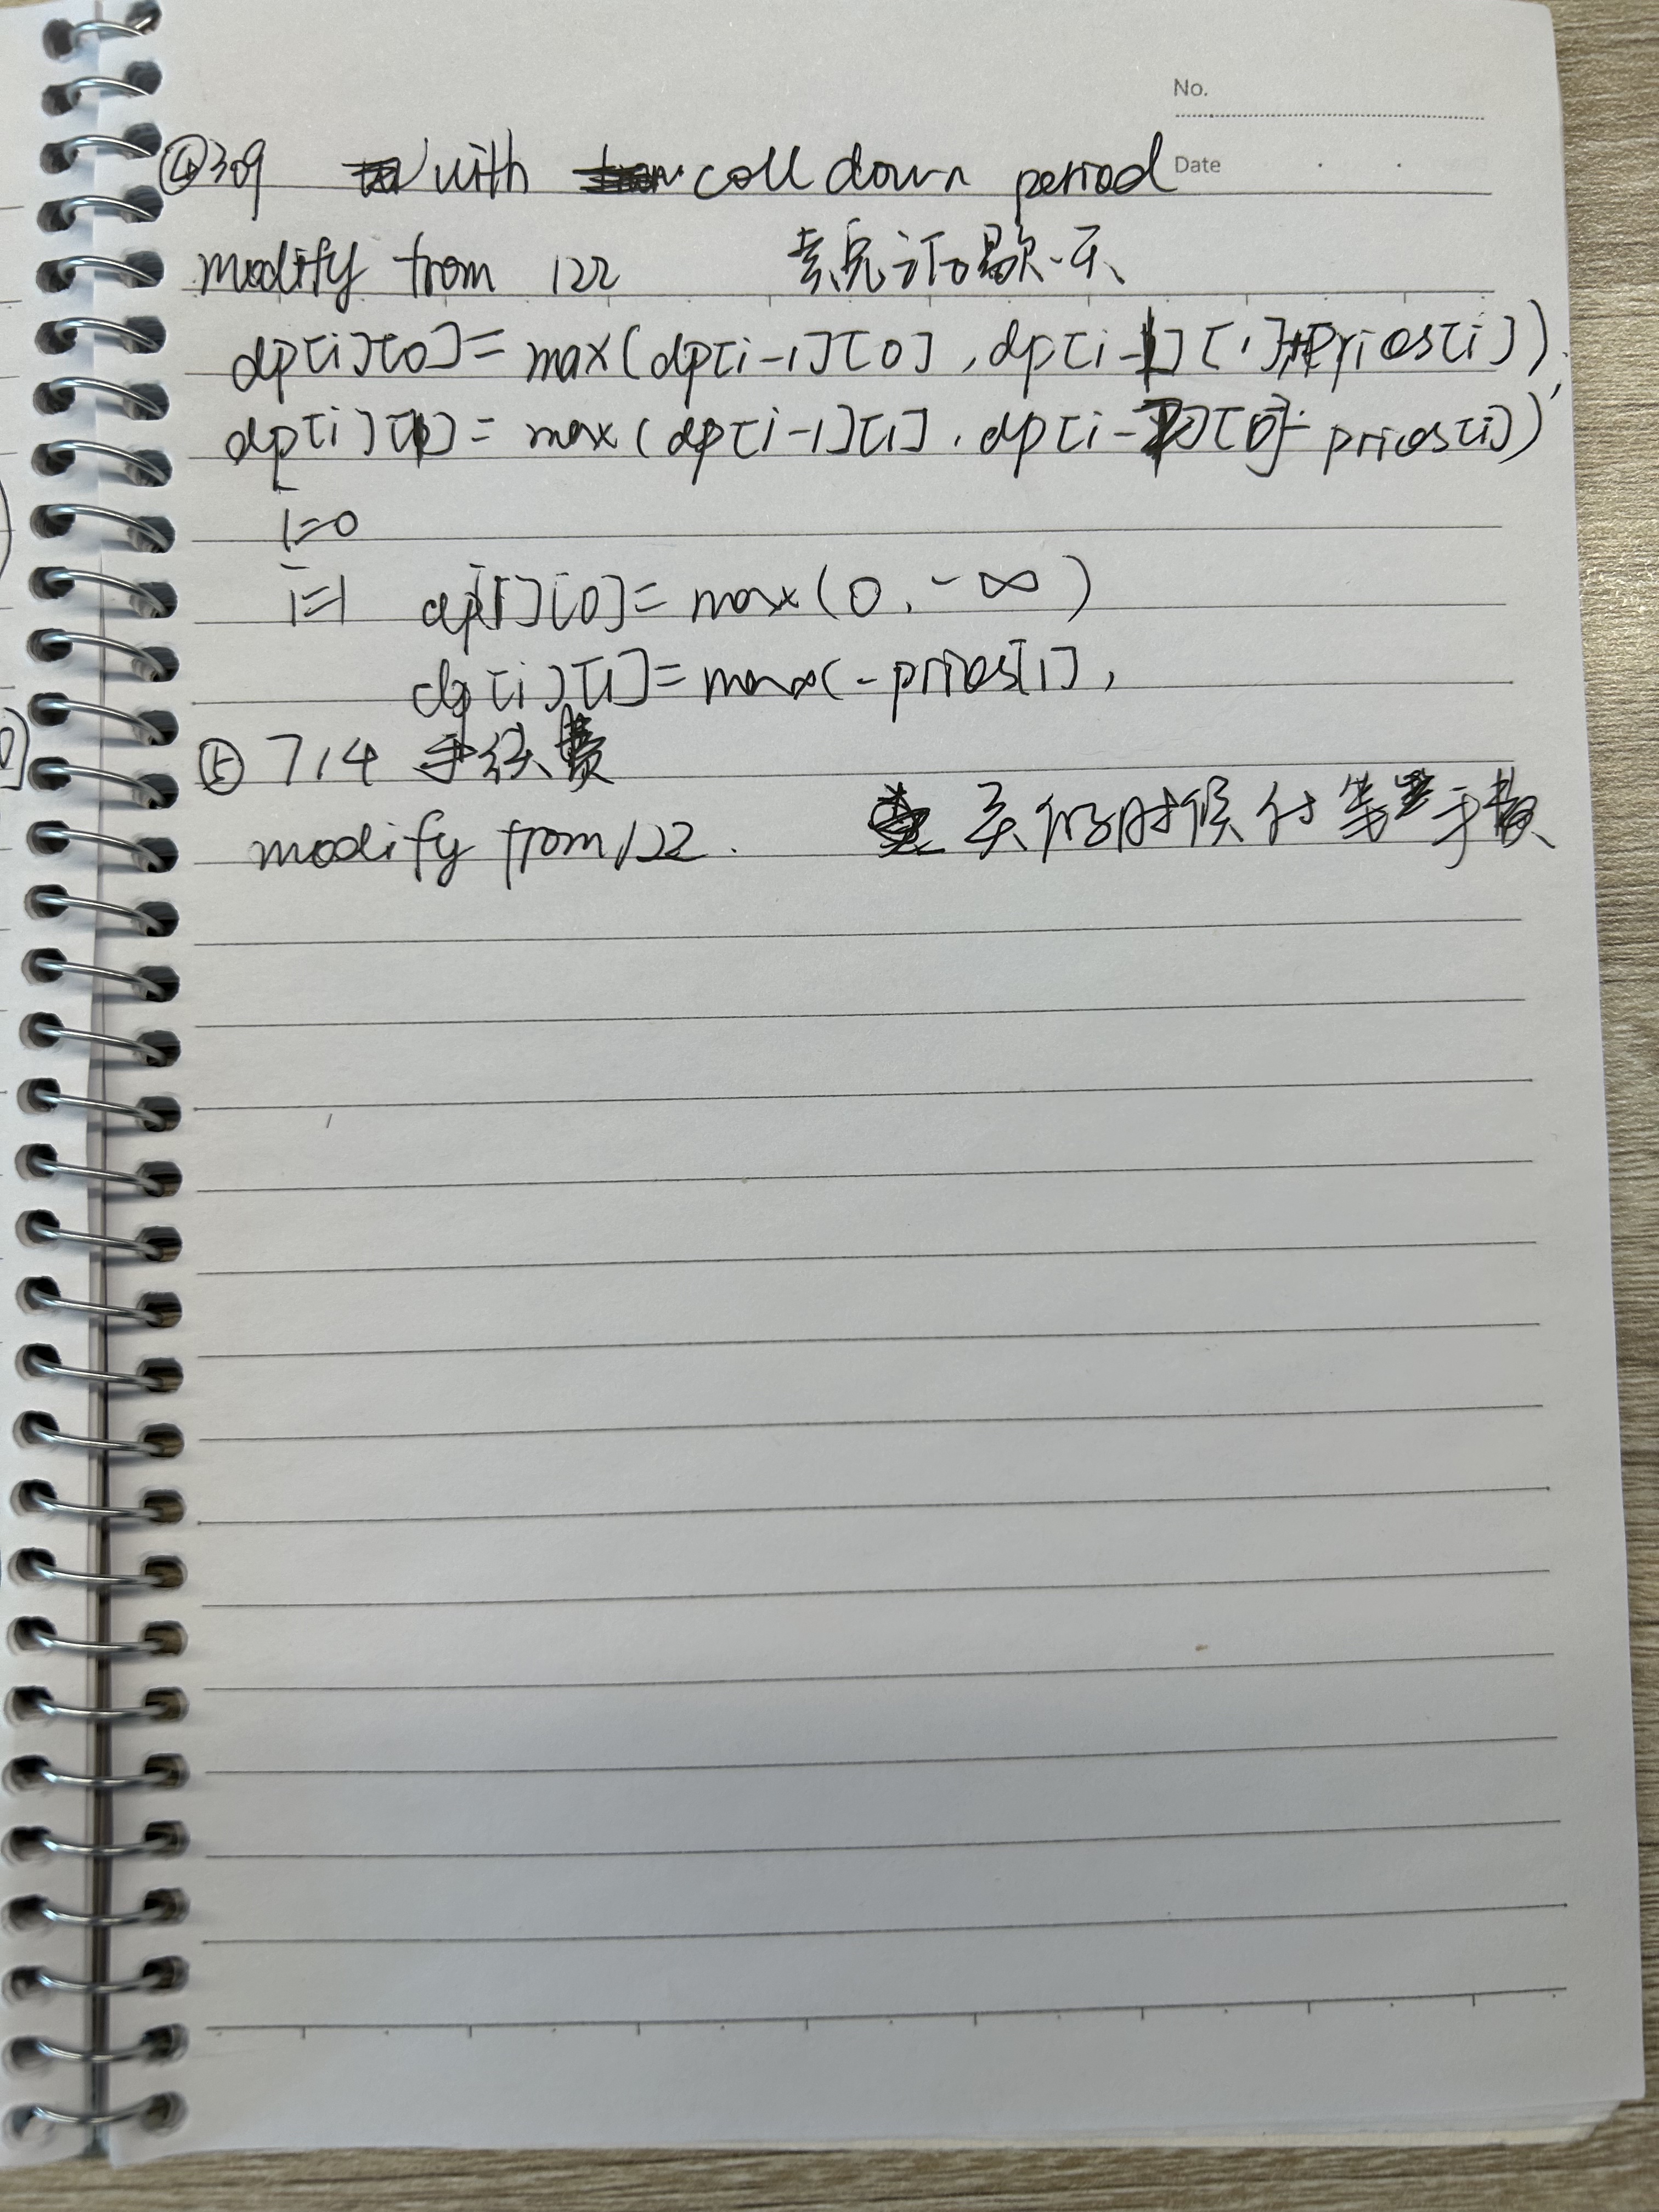 No.
④309 with coll down period Date
modify from 122 卖完以后歇一天
dp[i][0]=max(dp[i-1][0],dp[i-1][1]+prices[i])
dp[i][1]=max(dp[i-1][1],dp[i-2][0]-prices[i])
i=0
i=1 dp[i][0]=max(0,-∞)
dp[i][1]=max(-prices[1],
⑤ 714 手续费
modify from 122. 买的时候付